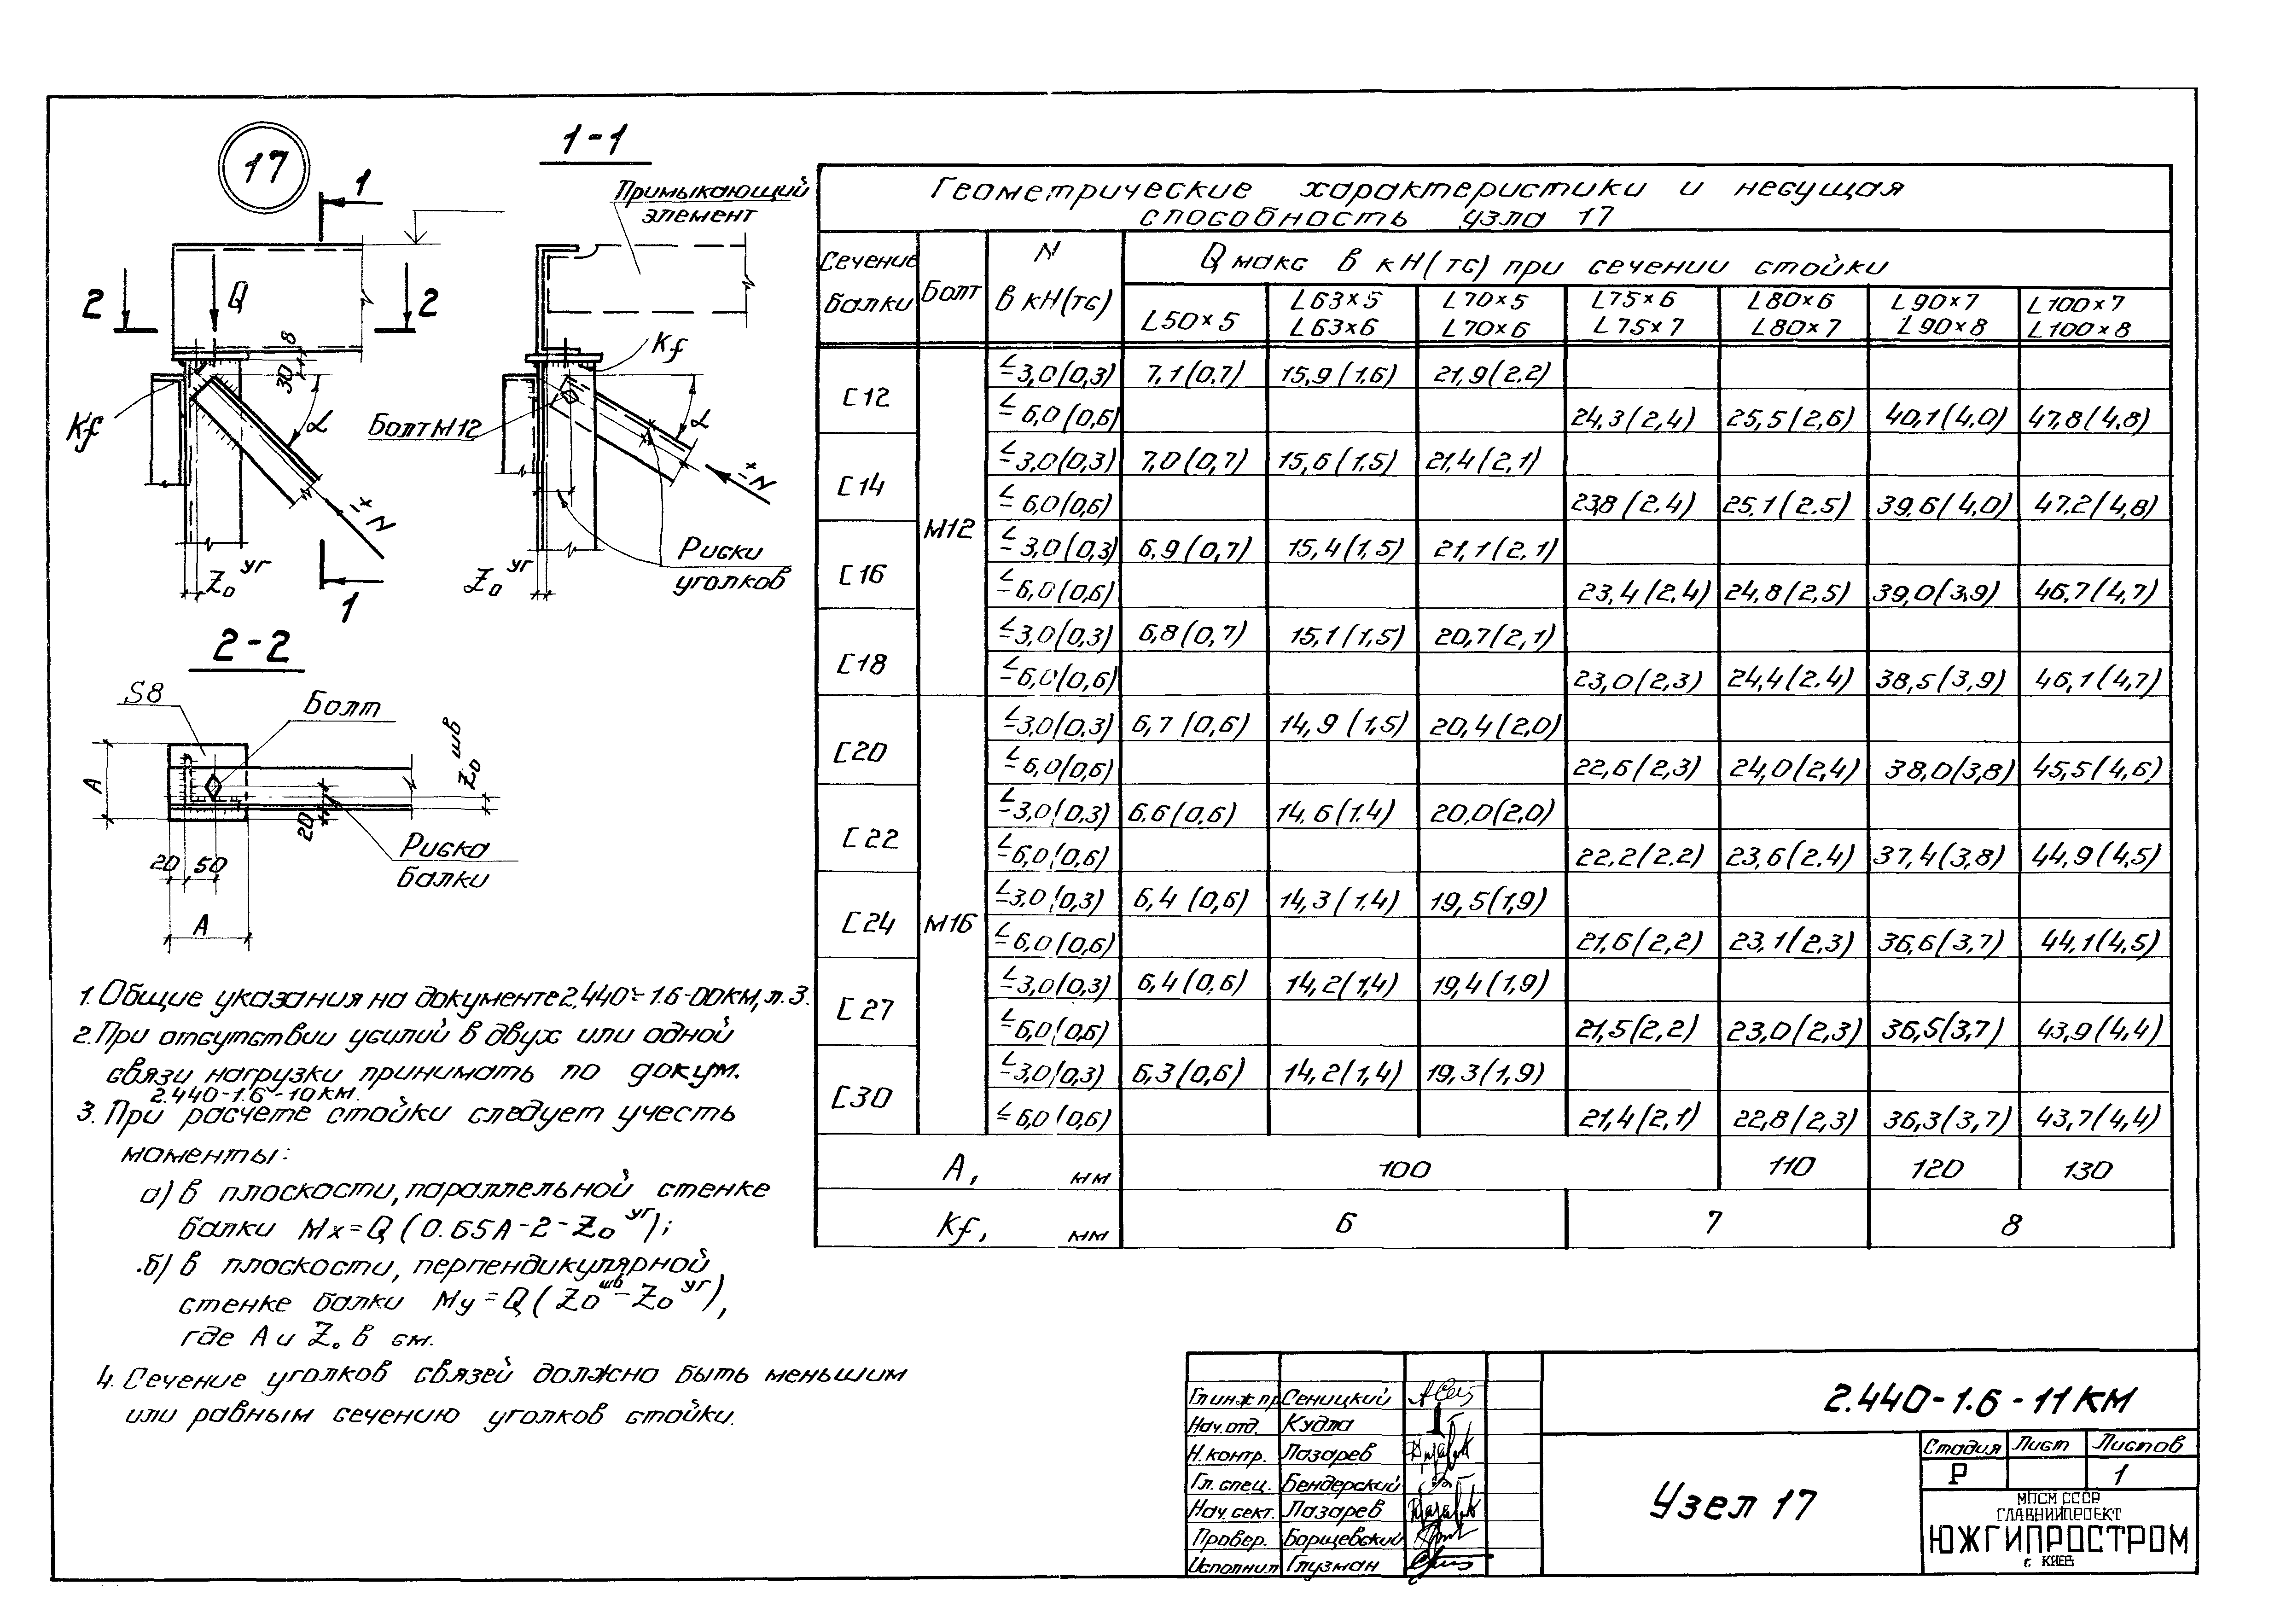 17
1
1
2
2
Q
8
30
Kf
α
±N
Z₀ уг
1-1
Примыкающий
элемент
Kf
Болт М12
α
±N
Риски
уголков
Z₀ уг
2-2
S8
Болт
Z₀ шв
A
20
20 50
Риска
балки
A
1. Общие указания на документе 2.440-1.6-00КМ, л. 3.
2. При отсутствии усилий в двух или одной
связи нагрузки принимать по докум.
2.440-1.6-10КМ.
3. При расчете стойки следует учесть
моменты:
а) в плоскости, параллельной стенке
балки Mx=Q(0.65A-2-Z₀ уг);
б) в плоскости, перпендикулярной
стенке балки My=Q(Z₀ шв-Z₀ уг),
где A и Z₀ в см.
4. Сечение уголков связей должно быть меньшим
или равным сечению уголков стойки.
Геометрические характеристики и несущая
способность узла 17
Сечение балки Болт N в кН(тс) Q макс в кН(тс) при сечении стойки
L50×5 L63×5 L70×5 L75×6 L80×6 L90×7 L100×7
L63×6 L70×6 L75×7 L80×7 L90×8 L100×8
[12 М12 ≤3,0(0,3) 7,1(0,7) 15,9(1,6) 21,9(2,2)
≤6,0(0,6) 24,3(2,4) 25,5(2,6) 40,1(4,0) 47,8(4,8)
[14 ≤3,0(0,3) 7,0(0,7) 15,6(1,5) 21,4(2,1)
≤6,0(0,6) 23,8(2,4) 25,1(2,5) 39,6(4,0) 47,2(4,8)
[16 ≤3,0(0,3) 6,9(0,7) 15,4(1,5) 21,1(2,1)
≤6,0(0,6) 23,4(2,4) 24,8(2,5) 39,0(3,9) 46,7(4,7)
[18 ≤3,0(0,3) 6,8(0,7) 15,1(1,5) 20,7(2,1)
≤6,0(0,6) 23,0(2,3) 24,4(2,4) 38,5(3,9) 46,1(4,7)
[20 М16 ≤3,0(0,3) 6,7(0,6) 14,9(1,5) 20,4(2,0)
≤6,0(0,6) 22,6(2,3) 24,0(2,4) 38,0(3,8) 45,5(4,6)
[22 ≤3,0(0,3) 6,6(0,6) 14,6(1,4) 20,0(2,0)
≤6,0(0,6) 22,2(2,2) 23,6(2,4) 37,4(3,8) 44,9(4,5)
[24 ≤3,0(0,3) 6,4(0,6) 14,3(1,4) 19,5(1,9)
≤6,0(0,6) 21,6(2,2) 23,1(2,3) 36,6(3,7) 44,1(4,5)
[27 ≤3,0(0,3) 6,4(0,6) 14,2(1,4) 19,4(1,9)
≤6,0(0,6) 21,5(2,2) 23,0(2,3) 36,5(3,7) 43,9(4,4)
[30 ≤3,0(0,3) 6,3(0,6) 14,2(1,4) 19,3(1,9)
≤6,0(0,6) 21,4(2,1) 22,8(2,3) 36,3(3,7) 43,7(4,4)
A, мм 100 110 120 130
Kf, мм 6 7 8
Гл.инж.пр. Сеницкий
Нач.отд. Кудла
Н.контр. Лазарев
Гл.спец. Бендерский
Нач.сект. Лазарев
Провер. Борщевский
Исполнил Глузман
2.440-1.6-11КМ
Узел 17
Стадия Лист Листов
Р 1
МПСМ СССР
ГЛАВНИИПРОЕКТ
ЮЖГИПРОСТРОМ
г. КИЕВ